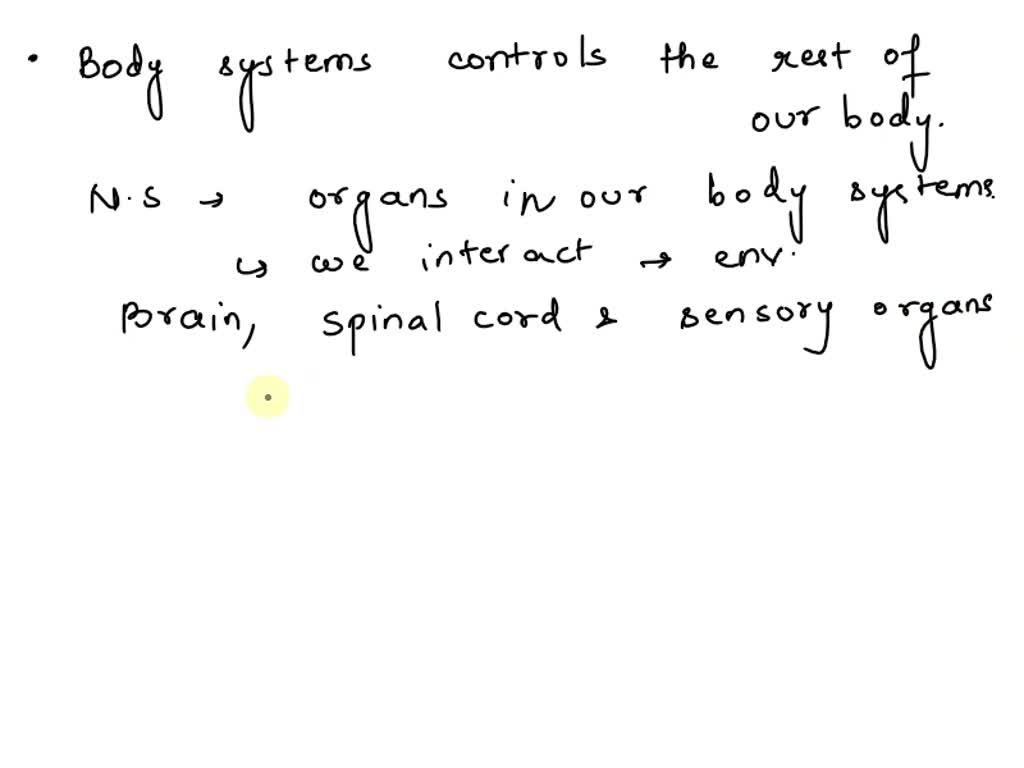 • Body systems controls the rest of
our body.
N.S → organs in our body systems.
↳ we interact → env.
Brain, spinal cord & sensory organs